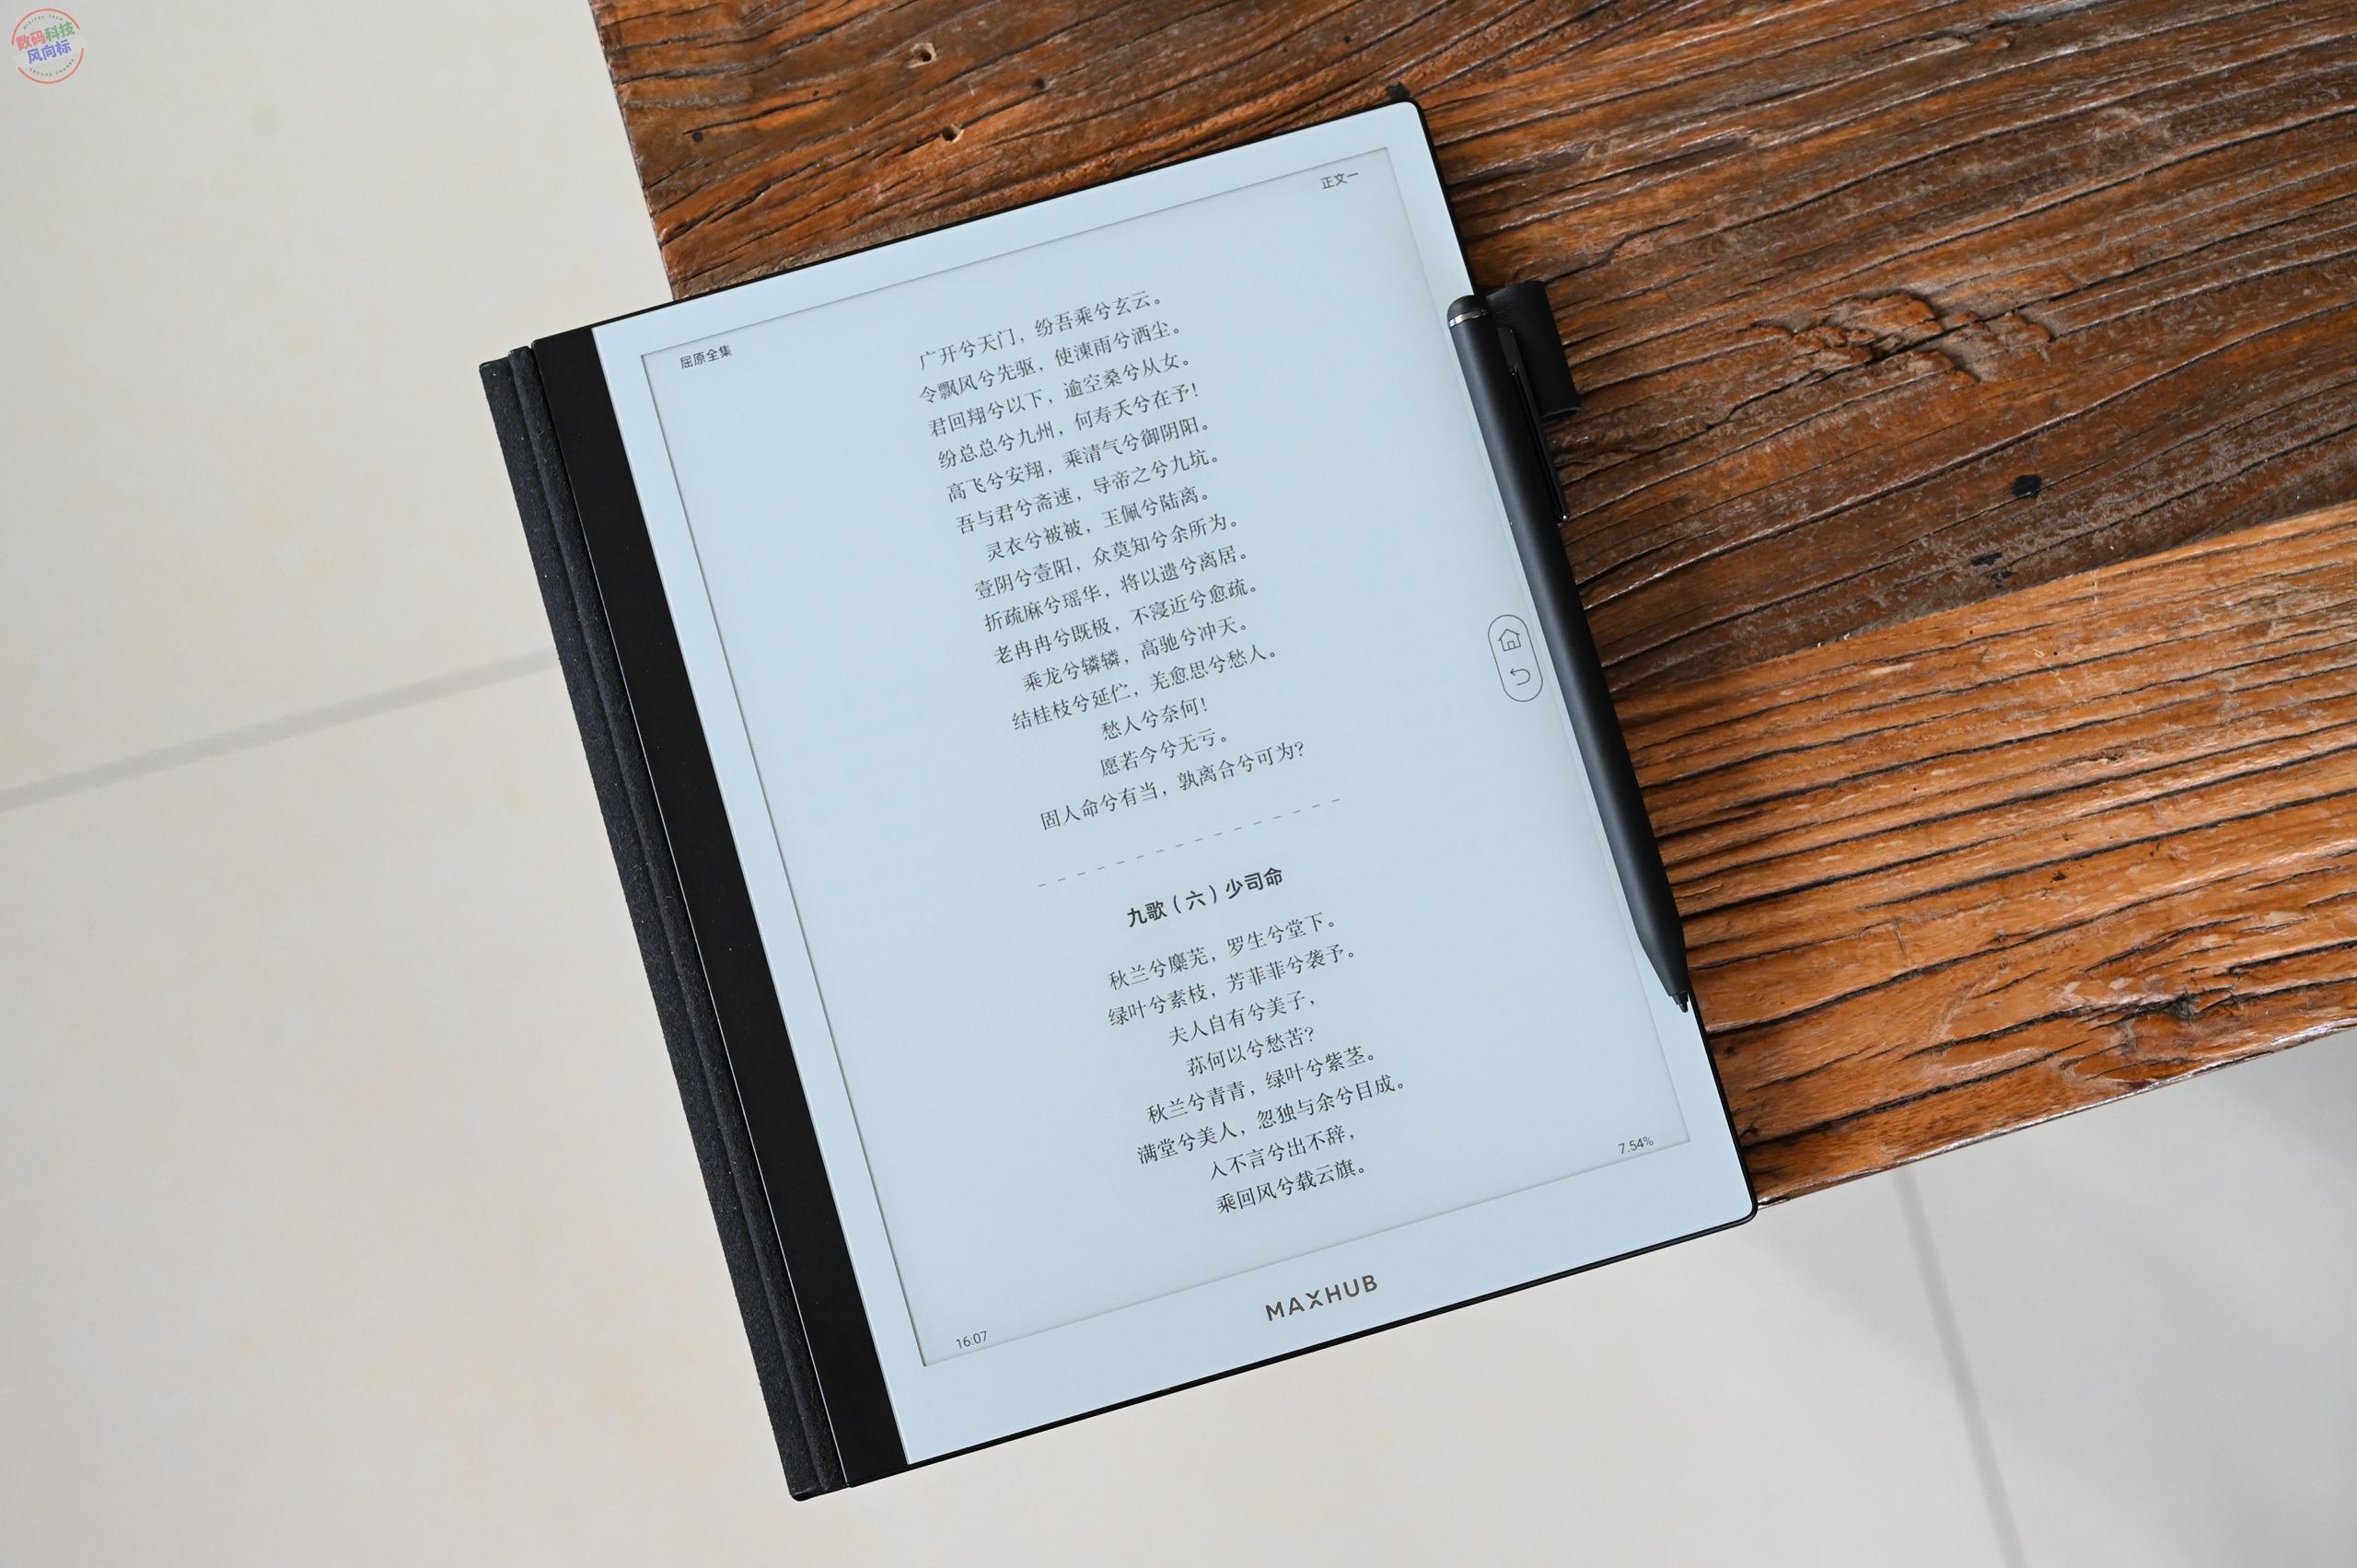 数码科技
风向标
屈原全集
正文一
广开兮天门，纷吾乘兮玄云。
令飘风兮先驱，使涷雨兮洒尘。
君回翔兮以下，逾空桑兮从女。
纷总总兮九州，何寿夭兮在予！
高飞兮安翔，乘清气兮御阴阳。
吾与君兮斋速，导帝之兮九坑。
灵衣兮被被，玉佩兮陆离。
壹阴兮壹阳，众莫知兮余所为。
折疏麻兮瑶华，将以遗兮离居。
老冉冉兮既极，不寖近兮愈疏。
乘龙兮辚辚，高驰兮冲天。
结桂枝兮延伫，羌愈思兮愁人。
愁人兮奈何！
愿若今兮无亏。
固人命兮有当，孰离合兮可为？
九歌（六）少司命
秋兰兮麋芜，罗生兮堂下。
绿叶兮素枝，芳菲菲兮袭予。
夫人自有兮美子，
荪何以兮愁苦？
秋兰兮青青，绿叶兮紫茎。
满堂兮美人，忽独与余兮目成。
入不言兮出不辞，
乘回风兮载云旗。
16:07
7.54%
MAXHUB